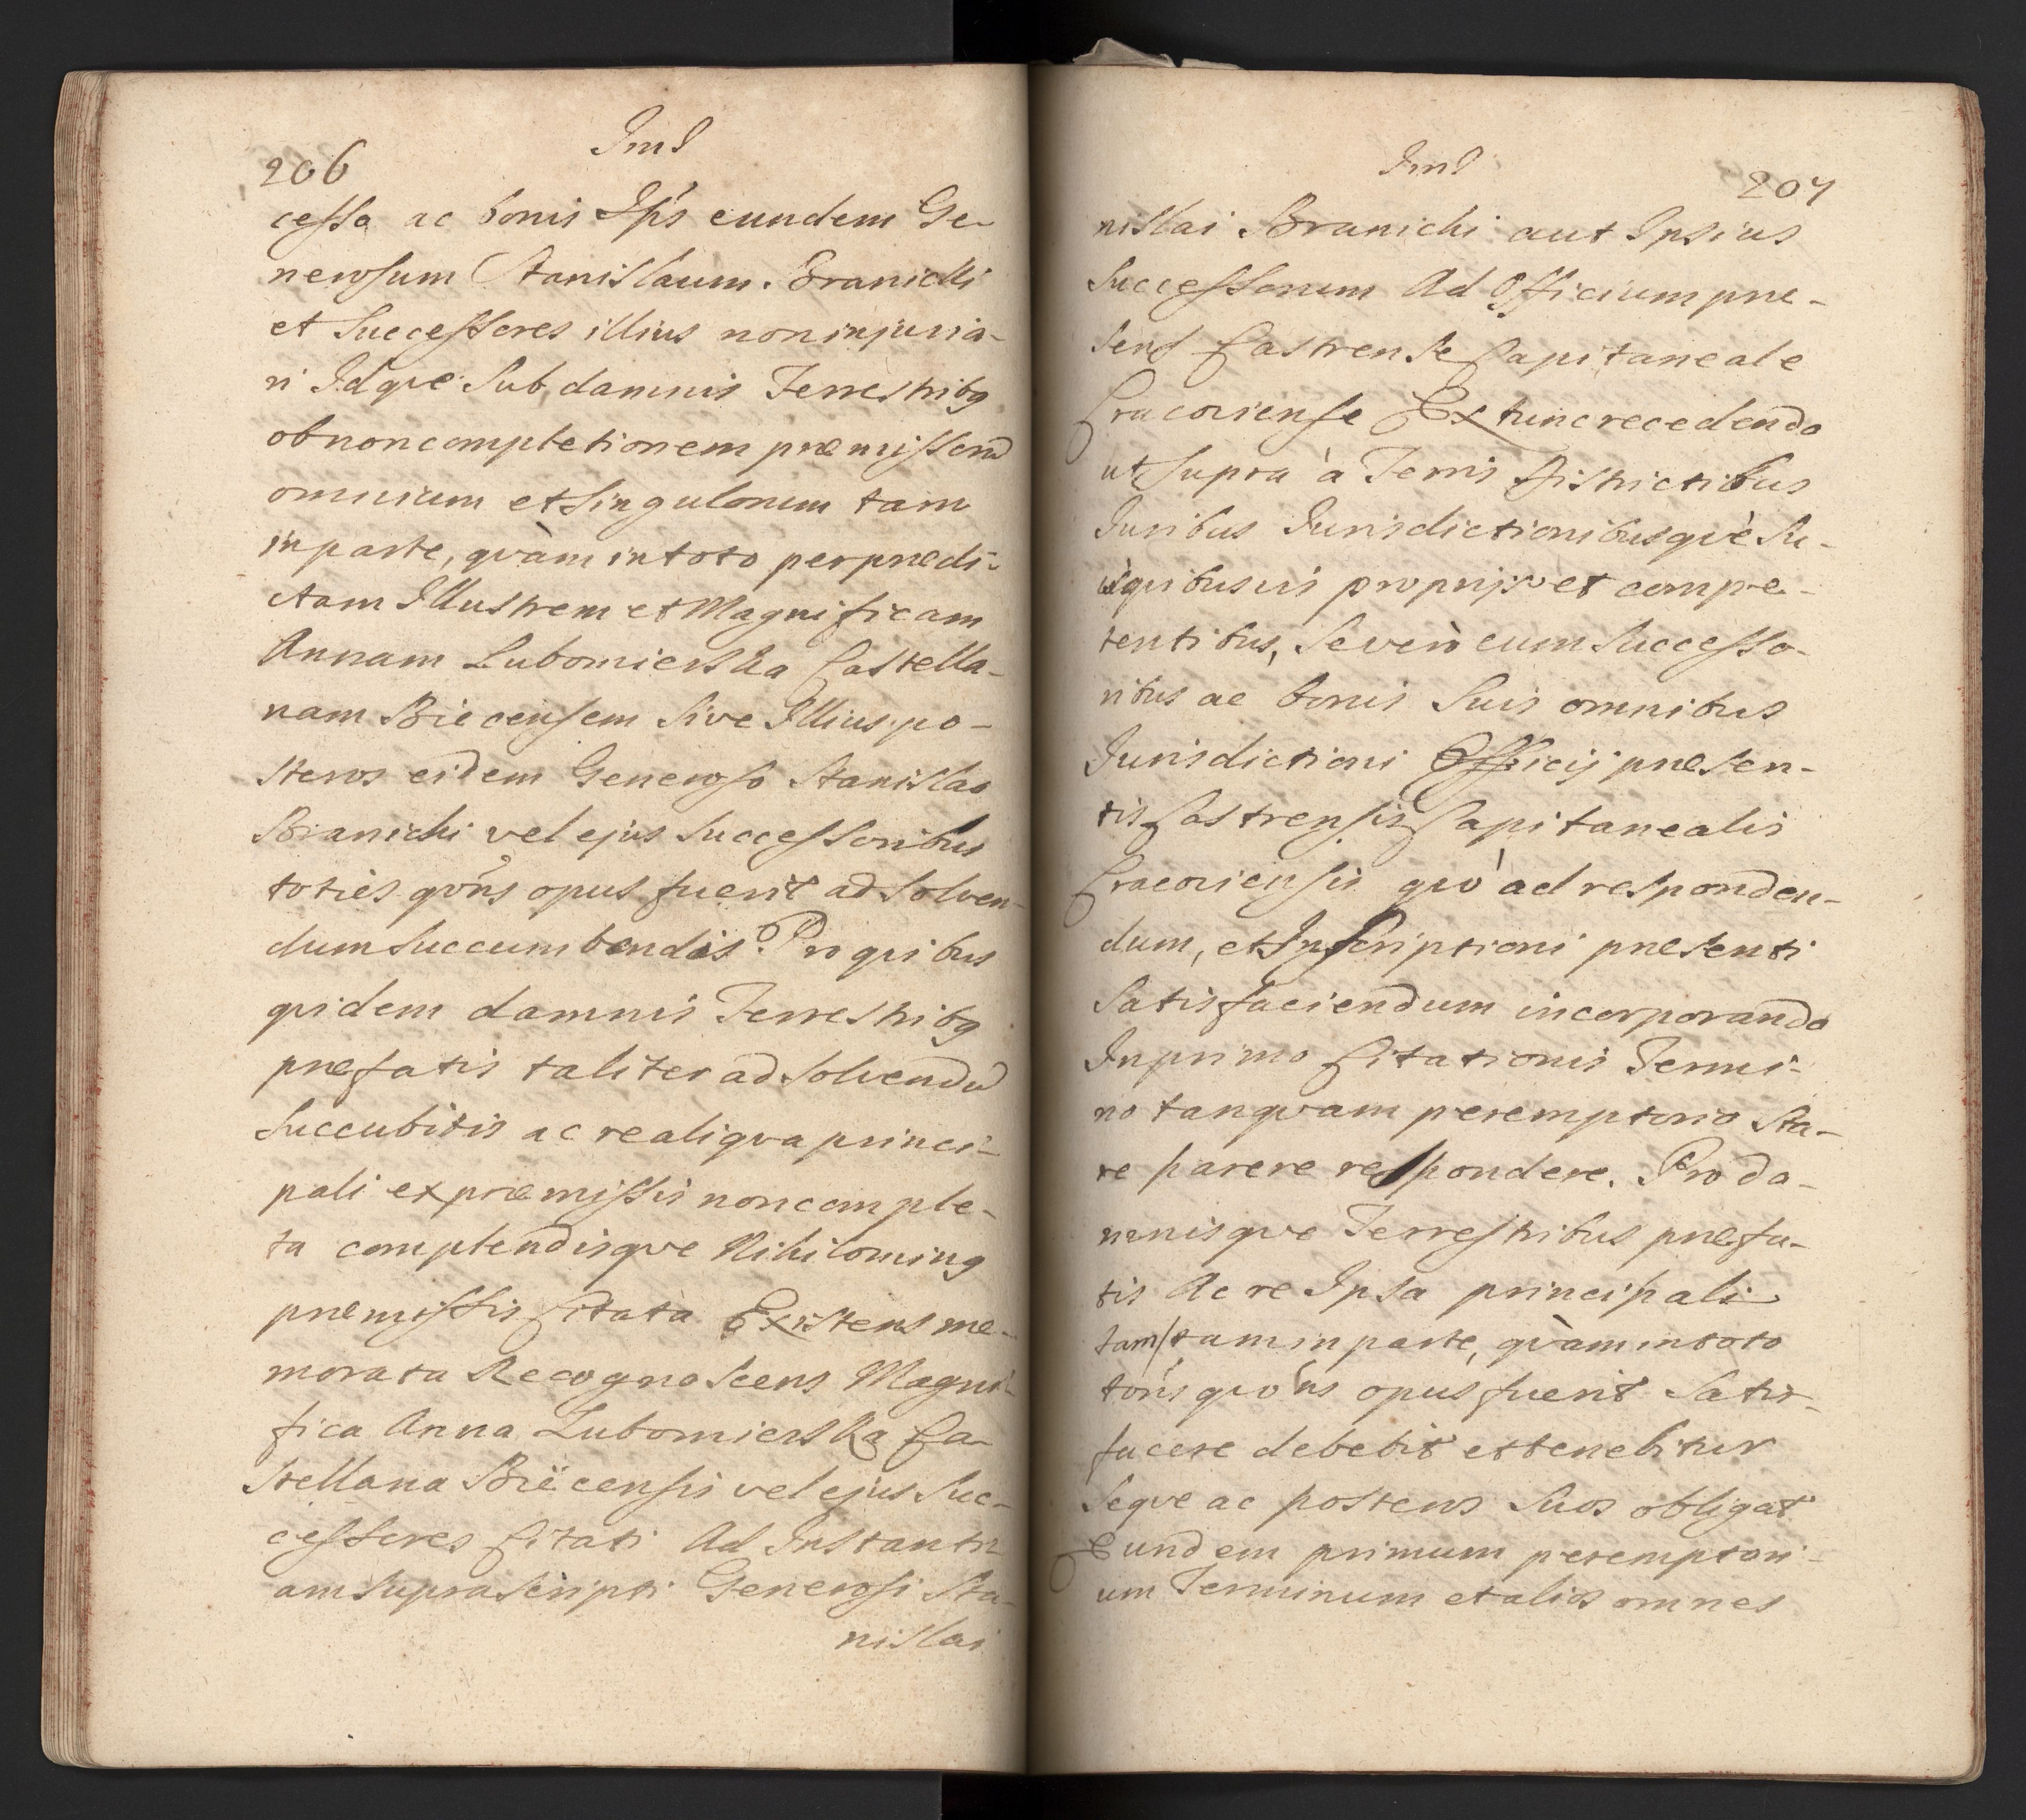 206
Jms
cesso ac bonis Ips eundem Ge-
nerosum Stanislaum Branichi
et Successores illius non injuria-
ri Idque Sub damnis Terrestribg
ob non completionem præmissoru
omnium et singulorum tam
in parte, qvàm in toto per prædi-
ctam Illustrem et Magnificam
Annam Lubomierska Castella-
nam Biecensem Sive Illius po-
steros eidem Generoso Stanislao
Branichi vel ejus Successoribus
toties qvóns opus fuerit ad solven-
dum succumbendis. Pro qvibus
qvidem damnis Terrestribg
præfatis taliter ad solvendu
Succubitis ac re aliqva princi-
pali ex præmissis non comple-
ta complendisqve Nihiloming
præmissis Citata Existens me-
morata Recognoscens Magni-
fica Anna Lubomierska Ca-
stellana Biecensis vel ejus Suc-
cessores Citati Ad Instanti-
am supra scripti Generosi Sta-
nislai
Jms
207
nislai Branichi aut Ipsius
Successorum Ad Officium præ-
sens Castrense Capitaneale
Cracoviense Ex tunc recedendo
ut supra à Terris Districtibus
Juribus Jurisdictionibusqvè Su-
isqvibusvis proprijs et compe-
tentibus, Se verò cum Successo-
ribus ac bonis Suis omnibus
Jurisdictioni Officij præsen-
tis Castrensis Capitanealis
Cracoviensis qvò ad responden-
dum, et Inscriptioni præsenti
Satisfaciendum incorporando
In primo Citationis Termi-
no tanqvam peremptorio Sta-
re parere respondere. Pro da-
mnisqve Terrestribus præfa-
tis Ac re Ipsa principali
tam/tam in parte, qvàm in toto
tóns qvóns opus fuerit Satis-
facere debebit et tenebitur
Seqve ac posteros Suos obligat
Eundem primum peremptori-
um Terminum et alios omnes